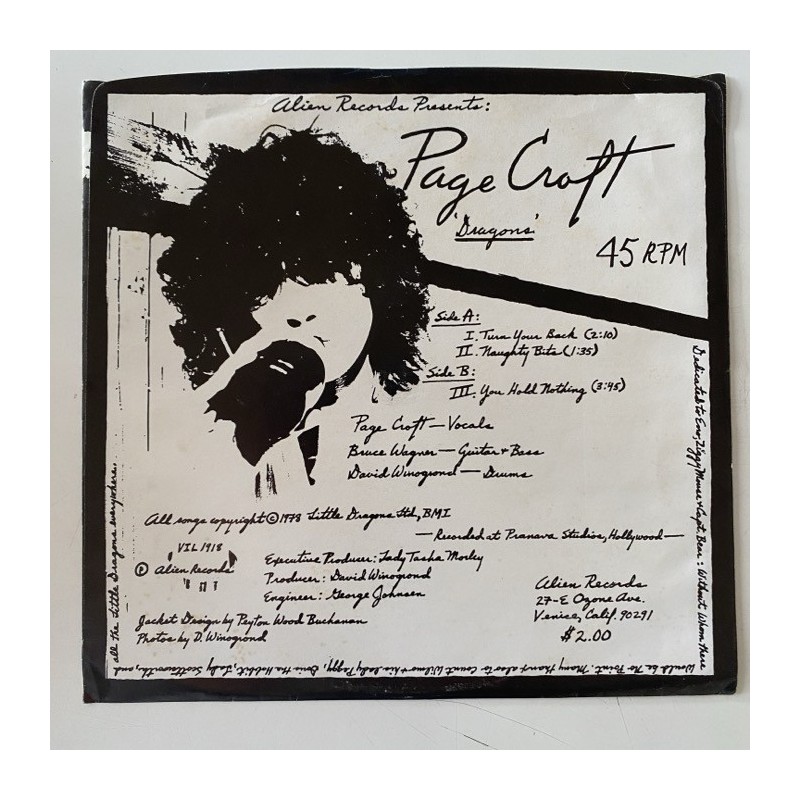 Alien Records Presents:
Page Croft
'Dragons'
45 RPM
Side A:
I. Turn Your Back (2:10)
II. Naughty Bits (1:35)
Side B:
III. You Hold Nothing (3:45)
Page Croft — Vocals
Bruce Wagner — Guitar + Bass
David Winogrond — Drums
All songs copyright © 1978 Little Dragons Ltd, BMI
— Recorded at Pranava Studios, Hollywood —
VIL 1918
℗ Alien Records
Executive Producer: Lady Tasha Morley
Producer: David Winogrond
Engineer: George Johnsen
Jacket Design by Peyton Wood Buchanan
Photos by D. Winogrond
Alien Records
27-E Ozone Ave.
Venice, Calif. 90291
$2.00
Dedicated to Eno, Ziggy Mouse + Capt. Bear: Without Whom there
Would be No Point. Many thanx also to Count Wilmo + his lady Peggy, the Hobbit, Lady and
all the Little Dragons everywhere.